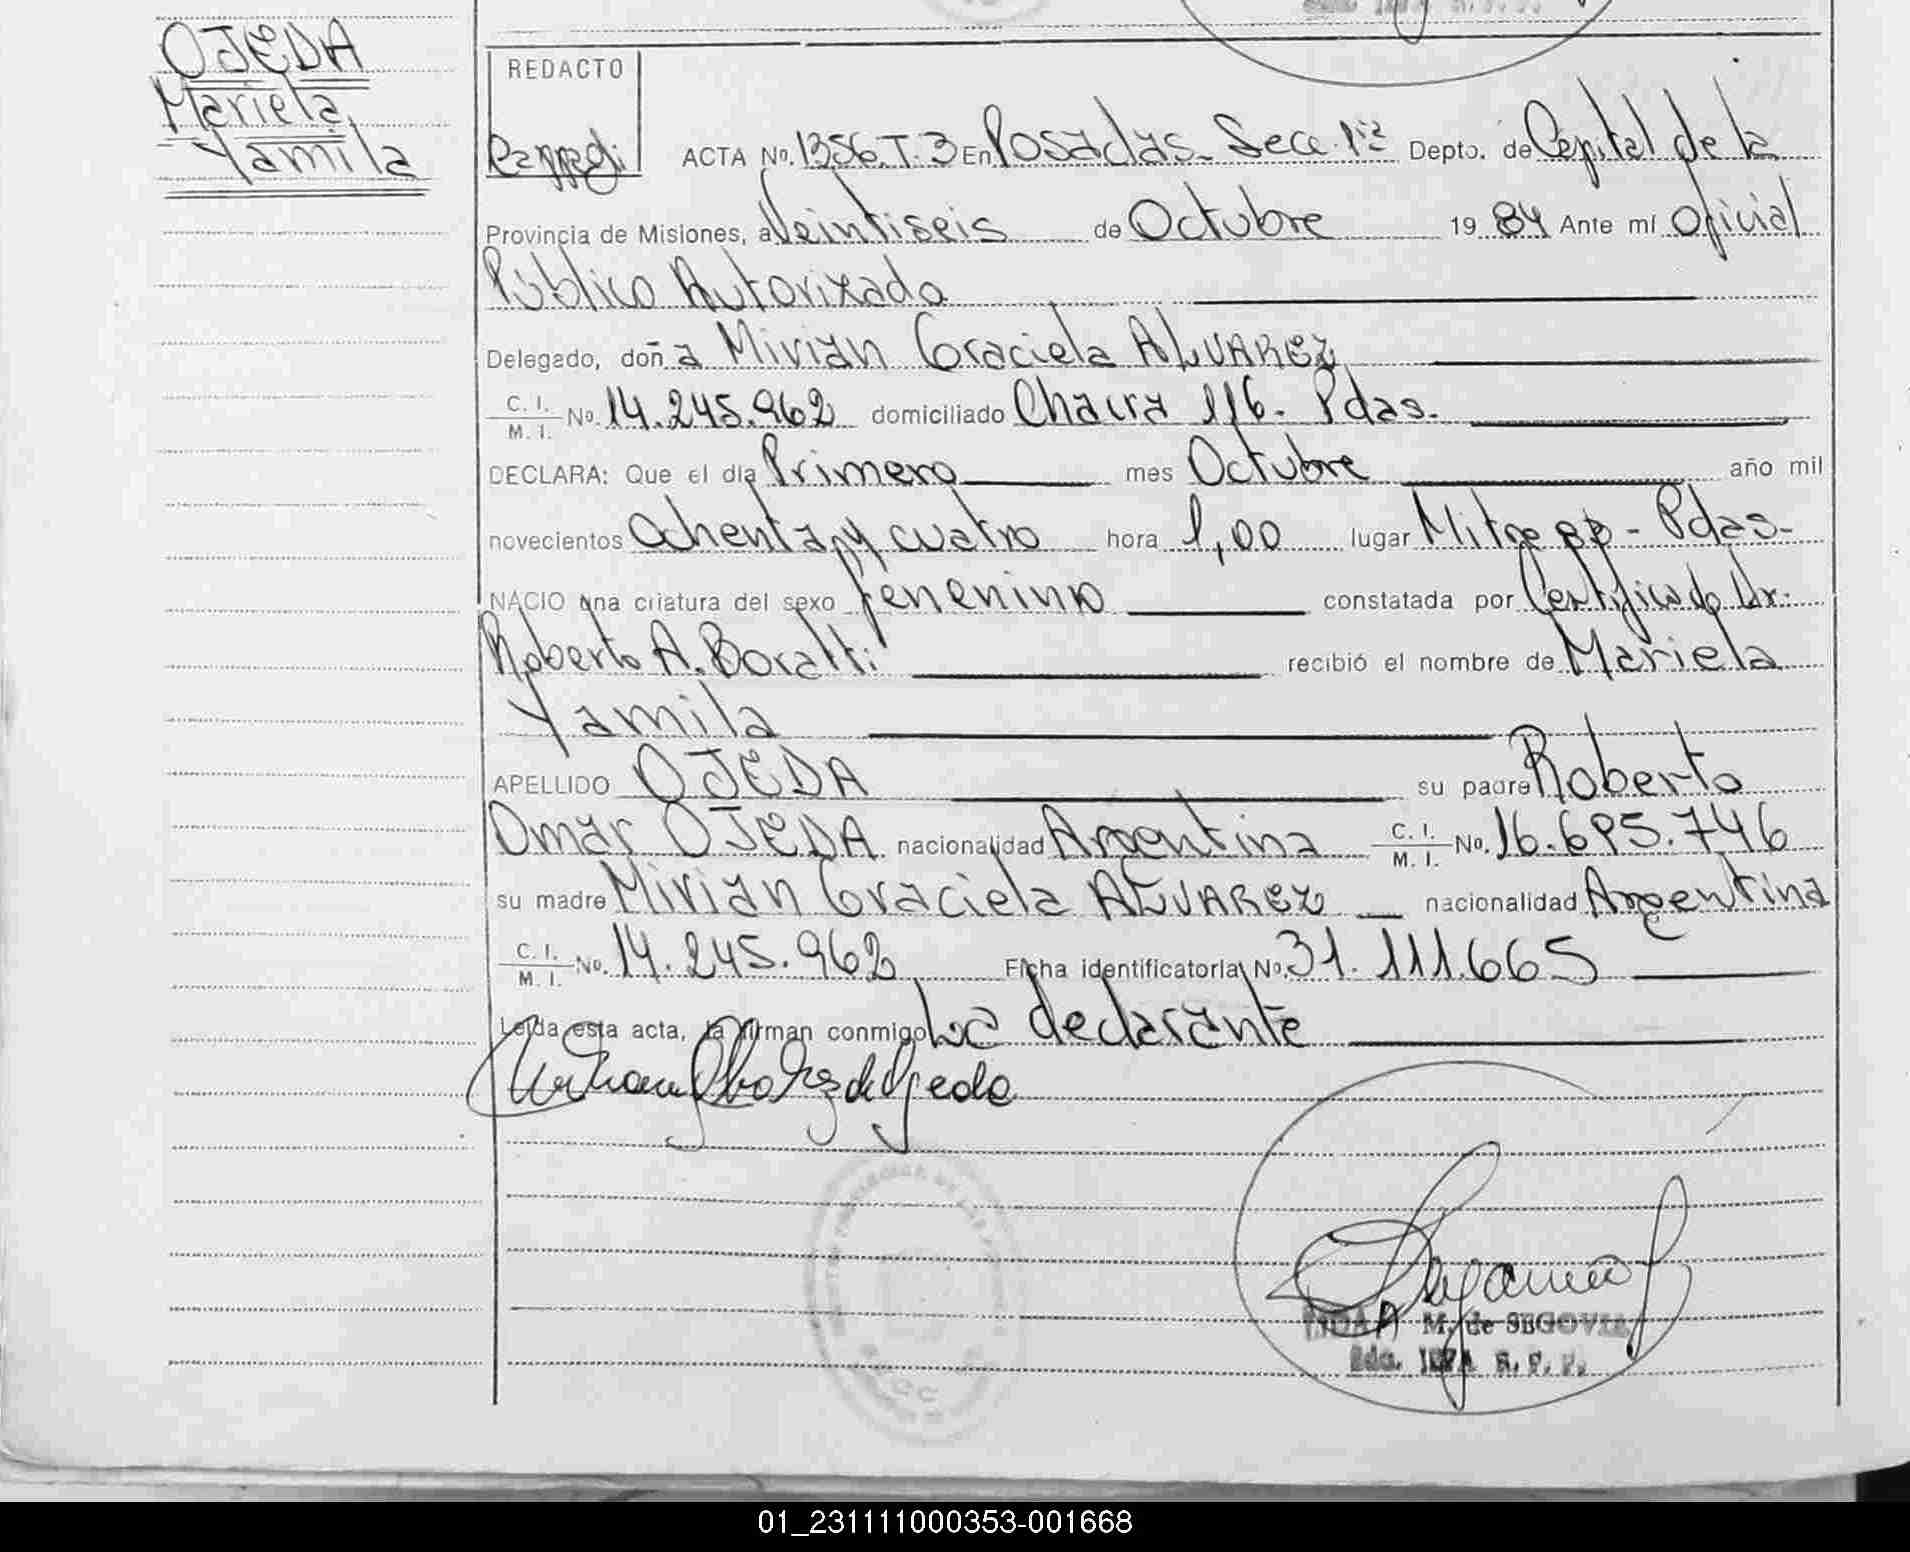 OJEDA
Mariela
Yamila
REDACTO
ACTA No. 1356.T.3 En Posadas- Secc. 1ra Depto. de Capital de la
Provincia de Misiones, a Veintiseis de Octubre 1984 Ante mí Oficial
Público Autorizado
Delegado, doña Mirian Graciela ALVAREZ
C. I. M. I. No. 14.245.962 domiciliado Chacra 116- Pdas.
DECLARA: Que el día Primero mes Octubre año mil
novecientos Ochenta y cuatro hora 1,00 lugar Mitre - Pdas-
NACIO una criatura del sexo femenino constatada por Certificado Dr.
Roberto A. recibió el nombre de Mariela
Yamila
APELLIDO OJEDA su padre Roberto
Omar OJEDA nacionalidad Argentina C. I. M. I. No. 16.695.746
su madre Mirian Graciela ALVAREZ nacionalidad Argentina
C. I. M. I. No. 14.245.962 Ficha identificatoria No. 31.111.665
Leída esta acta, la firman conmigo La declarante
de Ojeda
M. de SEGOVIA
01_231111000353-001668